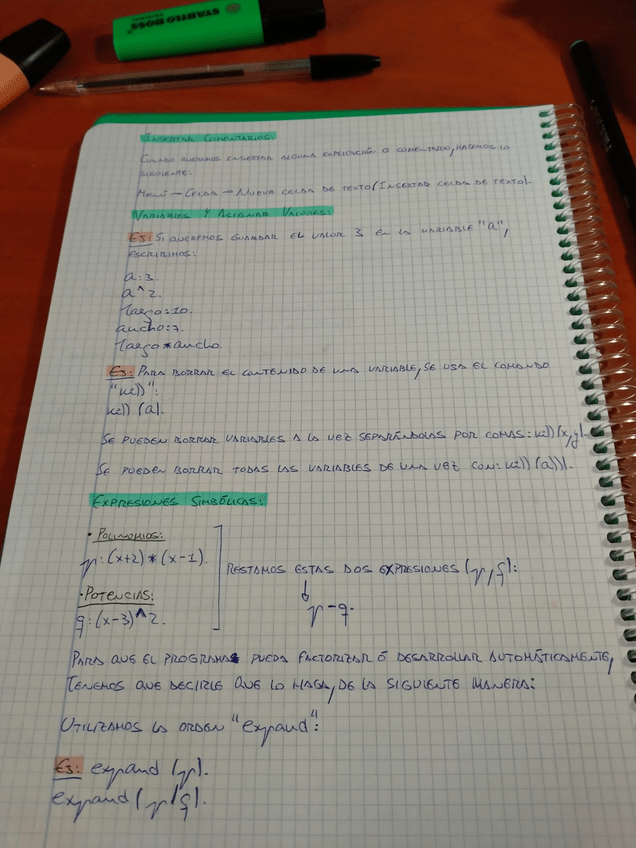 STABILO BOSS
ORIGINAL
INSERTAR COMENTARIOS:
CUANDO QUEREMOS INSERTAR ALGUNA EXPLICACIÓN O COMENTARIO, HACEMOS LO
SIGUIENTE:
MENÚ → CELDA → NUEVA CELDA DE TEXTO (INSERTAR CELDA DE TEXTO).
VARIABLES Y ASIGNAR VALORES:
EJ: SI QUEREMOS GUARDAR EL VALOR 3 EN LA VARIABLE "a",
ESCRIBIMOS:
a:3.
a^2.
largo:10.
ancho:7.
largo*ancho.
EJ: PARA BORRAR EL CONTENIDO DE UNA VARIABLE, SE USA EL COMANDO
"kill":
kill (a).
SE PUEDEN BORRAR VARIABLES A LA VEZ SEPARÁNDOLAS POR COMAS: kill(x,y).
SE PUEDEN BORRAR TODAS LAS VARIABLES DE UNA VEZ CON: kill(all).
EXPRESIONES SIMBÓLICAS:
• POLINOMIOS:
p:(x+2)*(x-1).
RESTAMOS ESTAS DOS EXPRESIONES (p,q):
• POTENCIAS:
↓
p-q.
q:(x-3)^2.
PARA QUE EL PROGRAMA PUEDA FACTORIZAR Ó DESARROLLAR AUTOMÁTICAMENTE,
TENEMOS QUE DECIRLE QUE LO HAGA, DE LA SIGUIENTE MANERA:
UTILIZAMOS LA ORDEN "expand":
EJ: expand (p).
expand (p/q).